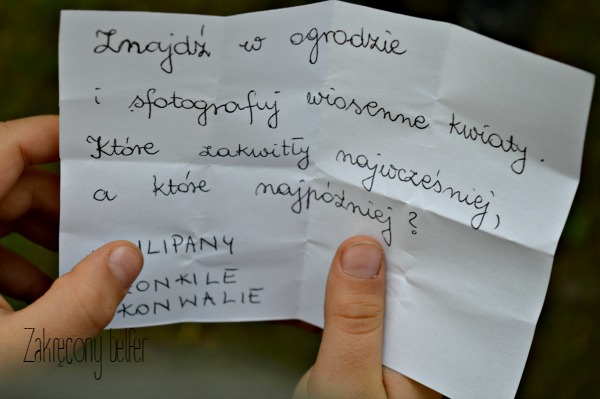 Znajdź w ogrodzie
i sfotografuj wiosenne kwiaty.
Które zakwitły najwcześniej,
a które najpóźniej?
ULIPANY
ONKILE
KONWALIE
Zakręcony belfer